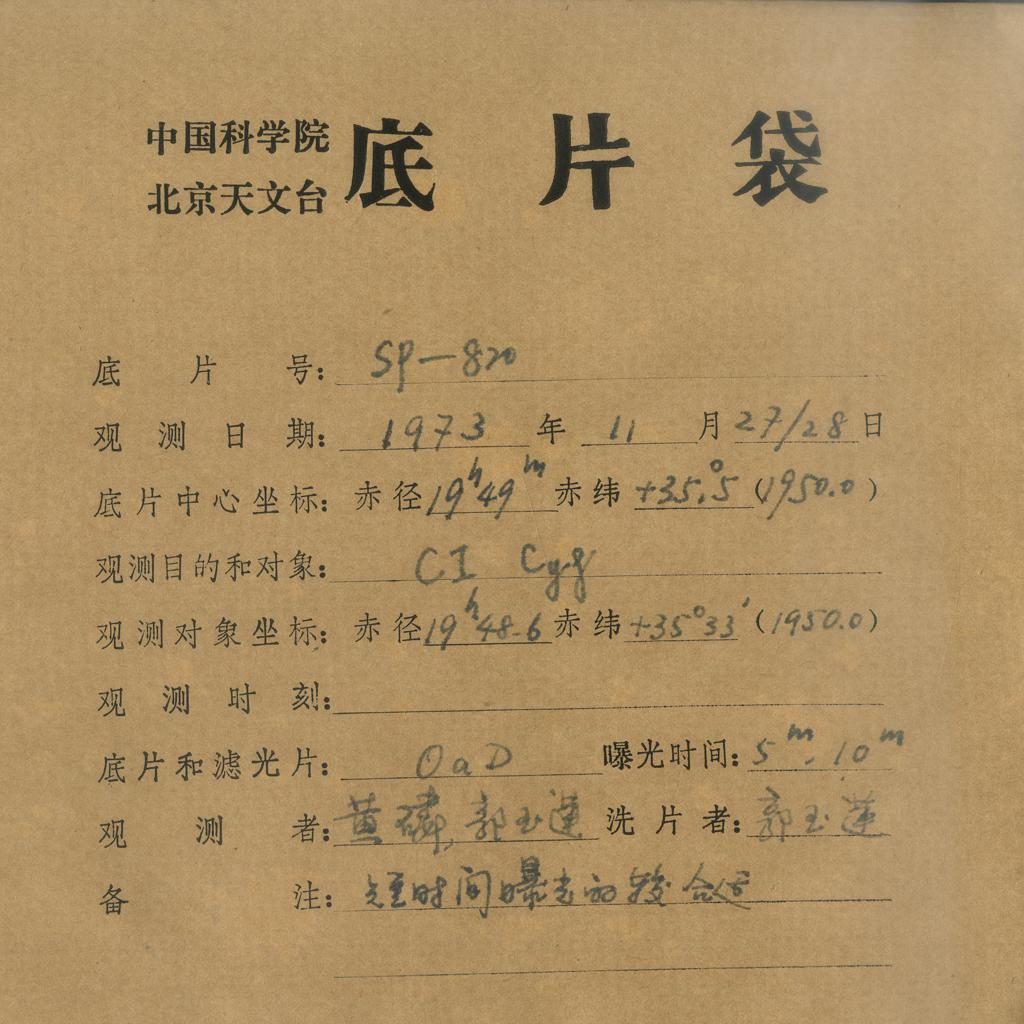 中国科学院
北京天文台
底片袋
底片号: SP-820
观测日期: 1973年11月27/28日
底片中心坐标: 赤径19ʰ49ᵐ赤纬+35.°5(1950.0)
观测目的和对象: CI Cyg
观测对象坐标: 赤径19ʰ48.6赤纬+35°33′(1950.0)
观测时刻:
底片和滤光片: OaD 曝光时间: 5ᵐ. 10ᵐ
观测者: 黄磷,郭玉莲 洗片者: 郭玉莲
备注: 短时间曝光的较合适